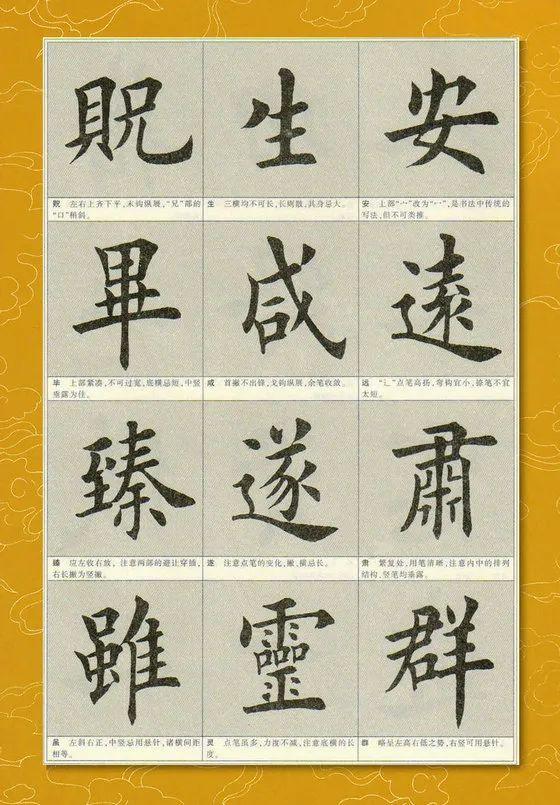 贶 生 安
贶 左右上齐下平，末钩纵展，“兄”部的
“口”稍斜。
生 三横均不可长，长则散，其身忌大。
安 上部“宀”改为“冖”，是书法中传统的
写法，但不可类推。
畢 咸 遠
毕 上部紧凑，不可过宽，底横忌短，中竖
垂露为佳。
咸 首撇不出锋，戈钩纵展，余笔收敛。
远 “辶”点笔高扬，弯钩宜小，捺笔不宜
太短。
臻 遂 肅
臻 应左收右放，注意两部的避让穿插，
右长撇为竖撇。
遂 注意点笔的变化，撇、横忌长。
肃 繁复处，用笔清晰，注意内中的排列
结构，竖笔均垂露。
雖 靈 群
虽 左斜右正，中竖忌用悬针，诸横间距
相等。
灵 点笔虽多，力度不减，注意底横的长
度。
群 略呈左高右低之势，右竖可用悬针。